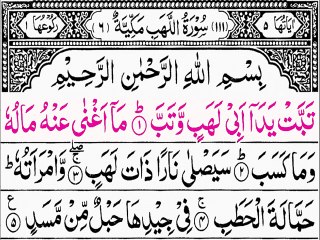 اٰيَاتُهَا ٥ (١١١) سُوْرَةُ اللَّهَبِ مَكِّيَّةٌ (٦) رُكُوْعُهَا ١
بِسْمِ اللهِ الرَّحْمٰنِ الرَّحِيْمِ
تَبَّتْ يَدَاۤ اَبِيْ لَهَبٍ وَّتَبَّ ؕ﴿١﴾ مَاۤ اَغْنٰى عَنْهُ مَالُهٗ
وَمَا كَسَبَ ؕ﴿٢﴾ سَيَصْلٰى نَارًا ذَاتَ لَهَبٍ ۚۖ﴿٣﴾ وَّامْرَاَتُهٗ ؕ
حَمَّالَةَ الْحَطَبِ ۚ﴿٤﴾ فِيْ جِيْدِهَا حَبْلٌ مِّنْ مَّسَدٍ ﴿٥﴾ ع